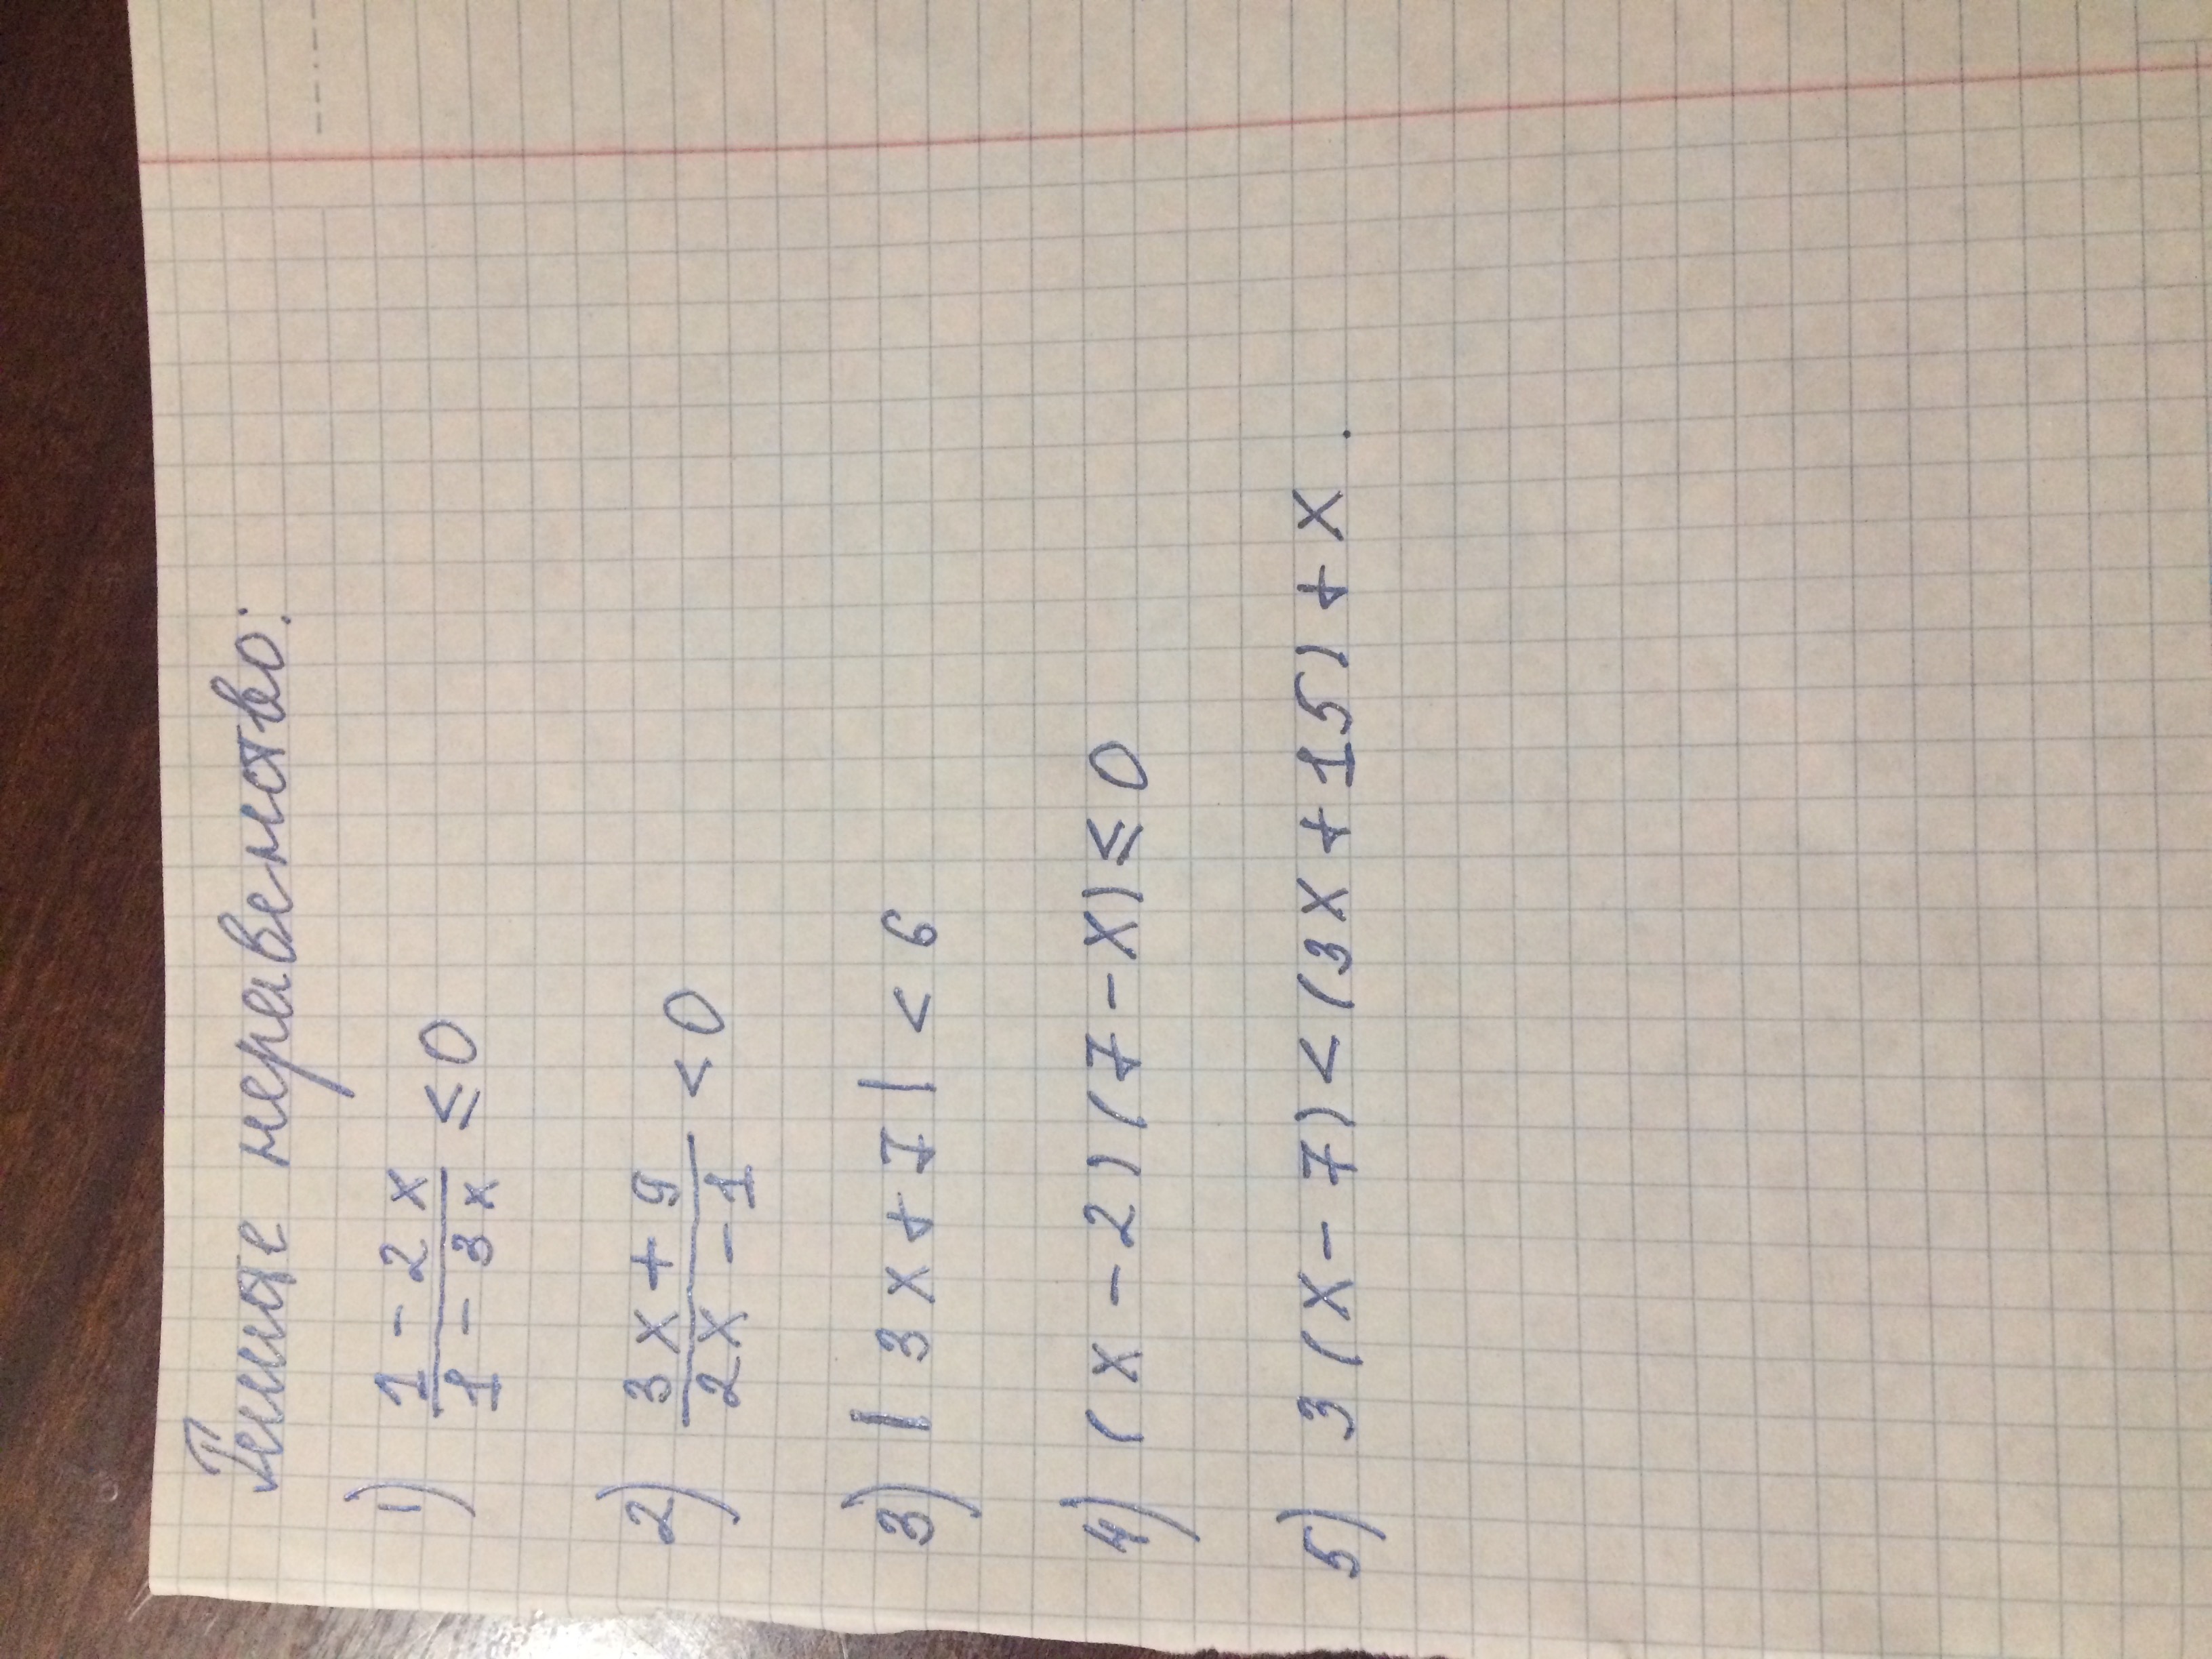 Решите неравенство:
1) \frac{1 - 2x}{1 - 3x} ≤ 0
2) \frac{3x + 9}{2x - 1} < 0
3) | 3x + 7 | < 6
4) (x - 2)(7 - x) ≤ 0
5) 3(x - 7) < (3x + 15) + x.